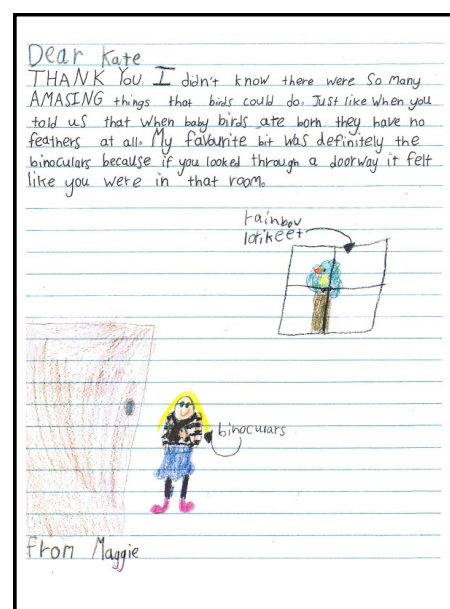 Dear Kate
THANK YOU. I didn't know there were so many
AMASING things that birds could do. Just like when you
told us that when baby birds are born they have no
feathers at all. My favourite bit was definitely the
binoculars because if you looked through a doorway it felt
like you were in that room.
rainbow
lorikeet
binoculars
from Maggie